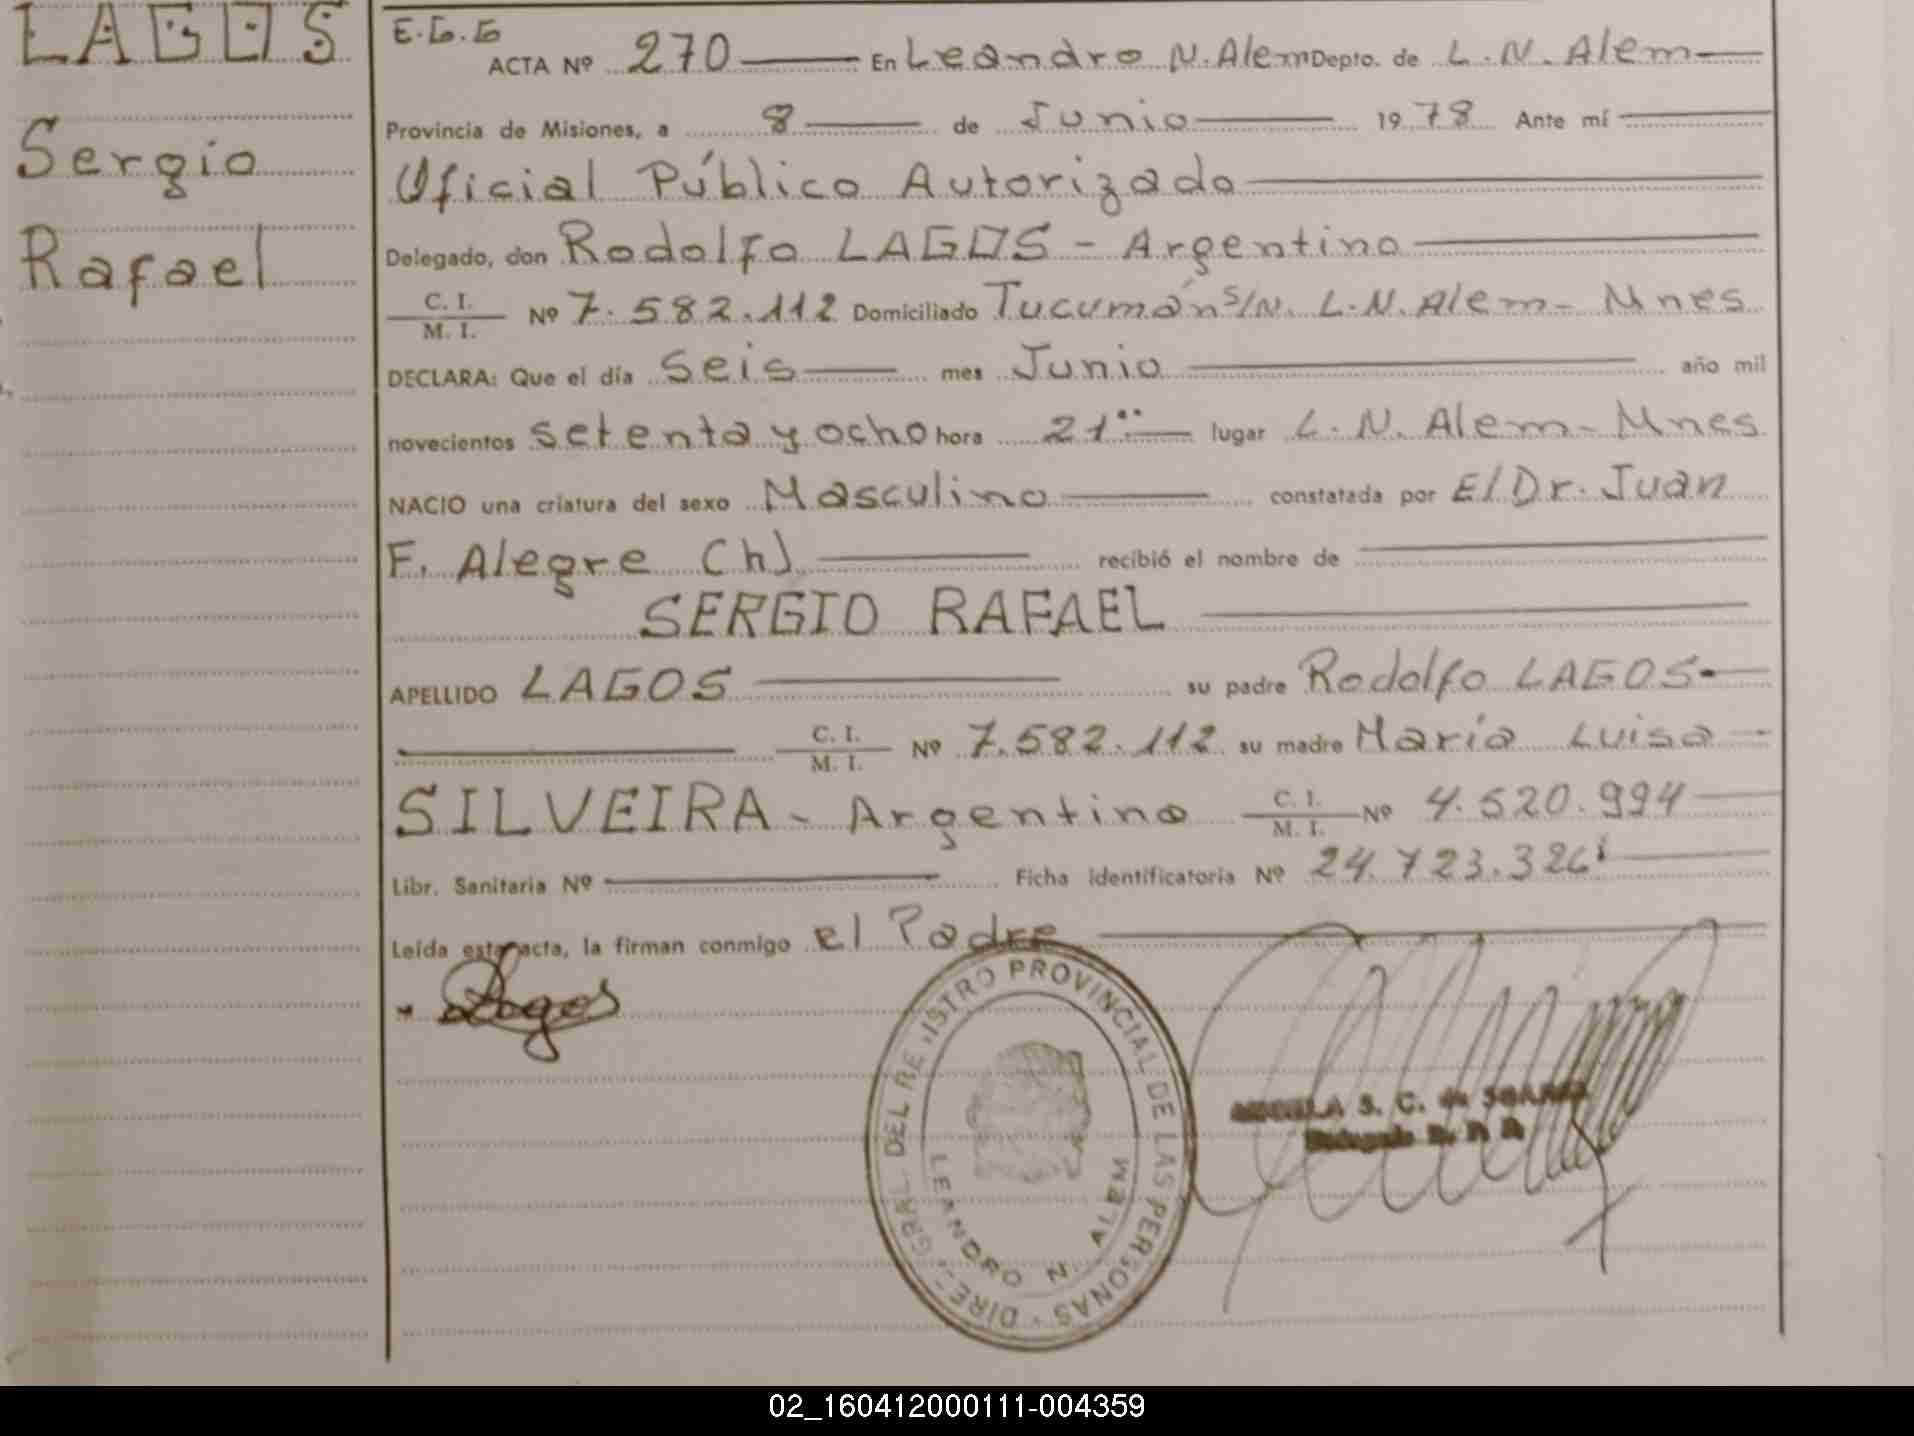 LAGOS
Sergio
Rafael
E.G.G
ACTA Nº 270 En Leandro N. Alem Depto. de L. N. Alem
Provincia de Misiones, a 8 de Junio 1978 Ante mí
Oficial Público Autorizado
Delegado, don Rodolfo LAGOS - Argentino
C. I.
M. I. Nº 7.582.112 Domiciliado Tucumán S/N. L.N. Alem - Mnes
DECLARA: Que el día Seis mes Junio año mil
novecientos setenta y ocho hora 21 lugar L. N. Alem - Mnes
NACIO una criatura del sexo Masculino constatada por El Dr. Juan
F. Alegre (h) recibió el nombre de
SERGIO RAFAEL
APELLIDO LAGOS su padre Rodolfo LAGOS.-
C. I.
M. I. Nº 7.582.112 su madre María Luisa -
SILVEIRA - Argentina C. I. M. I. Nº 4.520.994
Libr. Sanitaria Nº Ficha identificatoria Nº 24.723.326
Leída esta acta, la firman conmigo el Padre
Lagos
DIRE GRAL DEL RE ISTRO PROVINCIAL DE LAS PERSONAS
LEANDRO N. ALEM
S. C. de
02_160412000111-004359